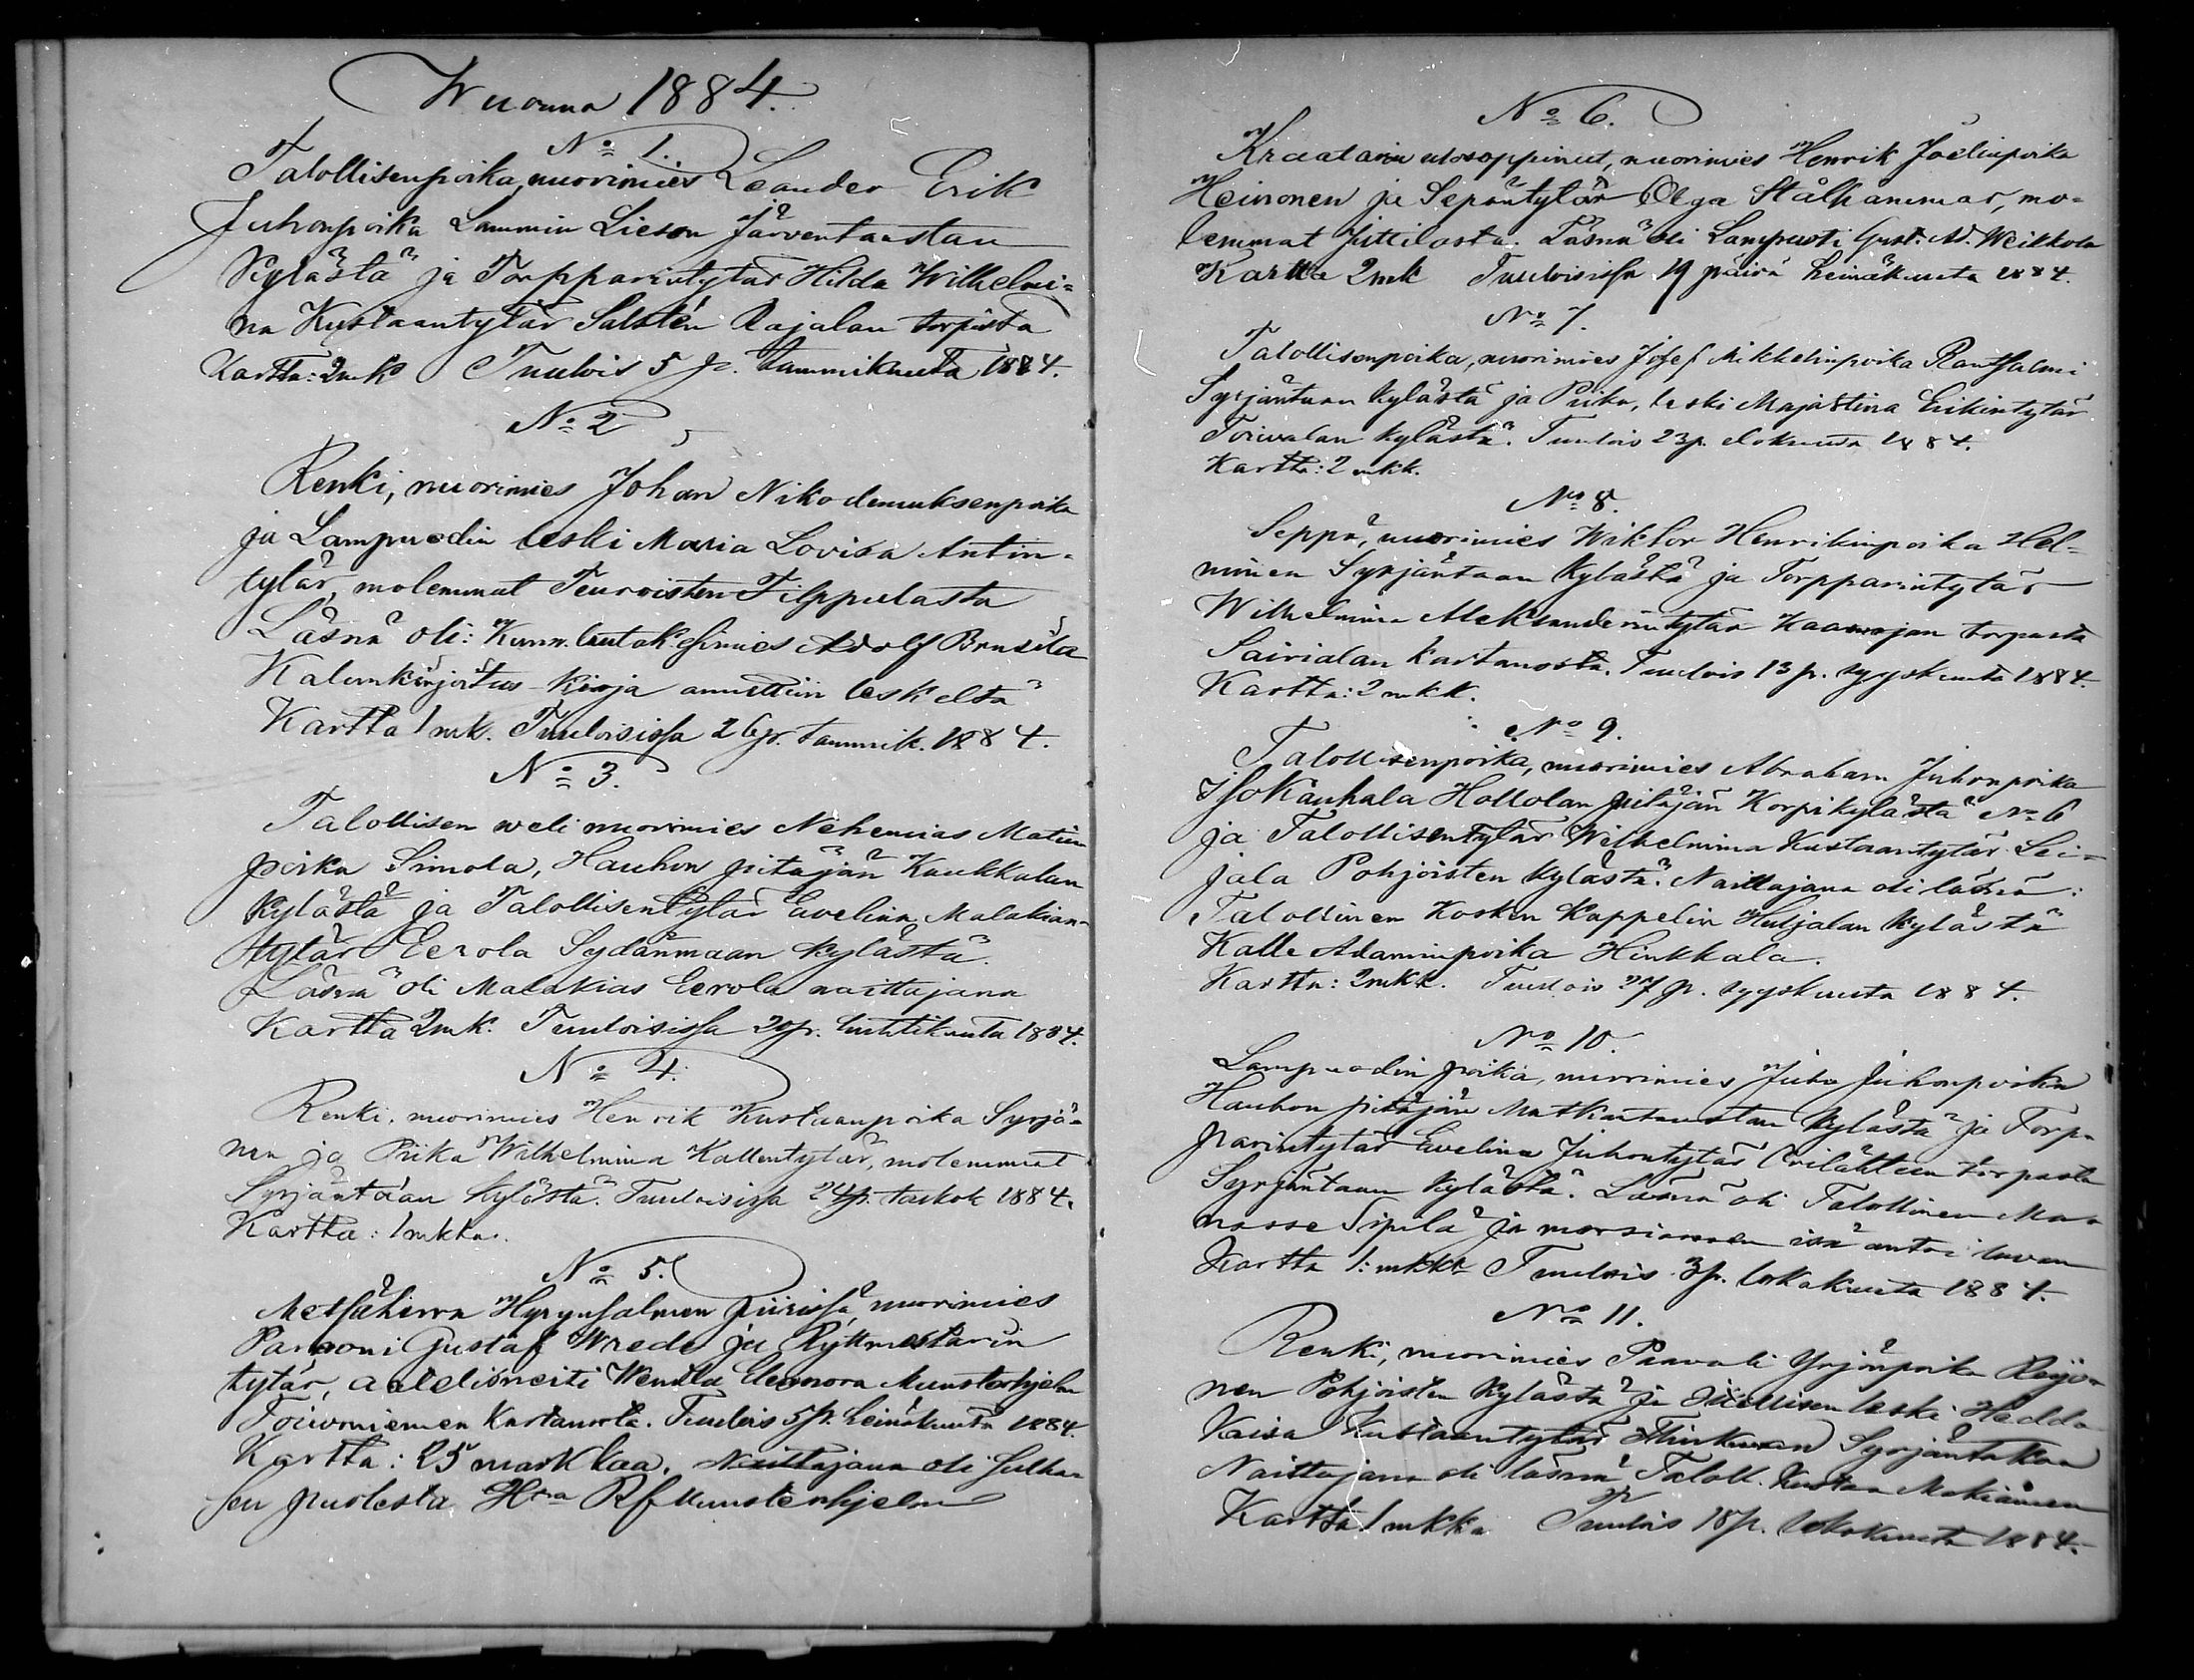 Wuonna 1884.
No 1.
Talollisenpoika, nuorimies Leander Erik
Juhonpoika Lammin Lieson Järventaustan
Kylästä ja Torpparintytär Hilda Wilhelmi=
na Kustaantytär Salstén Rajalan torpista
Kartta: 2mk Tuulois 5 p. tammikuuta 1884.
No 2
Renki, nuorimies Johan Nikodemuksenpoika
ja Lampuodin leski Maria Lovisa Antin-
tytär, molemmat Teuroisten Filppulasta
Läsnä oli: Kunn. lautak. Esimies Adolf Brusila
Kalunkirjoitus-kirja annettiin leskeltä
Kartta 1 mk. Tuuloisissa 26p. tammik. 1884.
No 3.
Talollisen weli nuorimies Nehemias Matin
poika Simola, Hauhon pitäjän Kaukkalan
Kylästä ja Talollisentytär Ewelina Malakian-
tytär Eerola Sydänmaan kylästä.
Läsnä oli Malakias Eerola naittajana
Kartta 2mk. Tuuloisissa 20p. huhtikuuta 1884.
No 4.
Renki, nuorimies Henrik Kustaanpoika Syrjä-
nen ja Piika Wilhelmina Kallentytär, molemmat
Syrjäntaan kylästä. Tuuloisissa 24p. toukok 1884.
Kartta: 1mkka.
No 5.
Metsäherra Hyrynsalmen piirissä, nuorimies
Parooni Gustaf Wrede ja Ryttmestarin
tytär, aatelisneiti Wendla Eleonora Munsterhjelm
Toivoniemen Kartanosta. Tuulois 5p. heinäkuuta 1884.
Kartta: 25 markkaa. Naittajana oli sulha-
sen puolesta Hra Rf Munsterhjelm
No 6.
Kraatarin ulosoppinut, nuorimies Henrik Joelinpoika
Heinonen ja Sepäntytär Olga Stålhammar, mo-
lemmat Juttilasta. Läsnä oli Lampuoti Gust. Ad. Weikkola
Kartta 2mk Tuuloisissa 19 päivä heinäkuuta 1884.
No 7.
Talollisenpoika, nuorimies Josef Mikkelinpoika Rantsalmi
Syrjäntaan kylästä ja Piika, leski Majastina Erikintytär
Toivalan kylästä. Tuulois 23p. elokuuta 1884.
Kartta: 2 mkk.
No 8.
Seppä, nuorimies Wiktor Henrikinpoika Hel-
minen Syrjäntaan Kylästä ja Torpparintytär
Wilhelmina Aleksanderintytär torpasta
Sairialan kartanosta. Tuulois 13 p. syyskuuta 1884.
Kartta: 2 mkk.
No 9.
Talollisenpoika, nuorimies Abraham Juhonpoika
IsoKauhala Hollolan pitäjän Korpikylästä No 6
ja Talollisentytär Wilhelmina Kustaantytär Lei-
jala Pohjoisten kylästä. Naittajana oli läsnä:
Talollinen Kosken Kappelin Hutjalan kylästä
Kalle Adaminpoika Hinkkala.
Kartta: 2mkk. Tuulois 27 p. syyskuuta 1884.
No 10.
Lampuodin poika, nuorimies Juho Juhonpoika
Hauhon pitäjän Matkantaustan kylästä ja Torp-
parintytär Ewelina Juhontytär torpasta
Syrjäntaan kylästä. Läsnä oli Talollinen Ma-
nasse Sipilä ja morsiamen isä antoi luvan
Kartta 1: mkka Tuulois 3p. lokakuuta 1884.
No 11.
Renki, nuorimies Paavali Yrjönpoika Reijo-
nen Pohjoisten kylästä ja Itsellisen leski Hedda
Kaisa Kustaantytär Syrjäntakaa
Naittajana oli läsnä Taloll. Kustaa
Kartta 1 mkka Tuulois 18p. lokakuuta 1884.